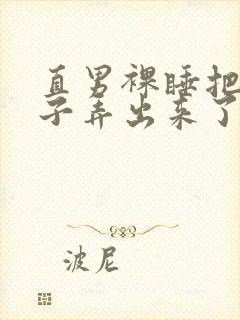 直男裸睡把
子弄出来了
波尼